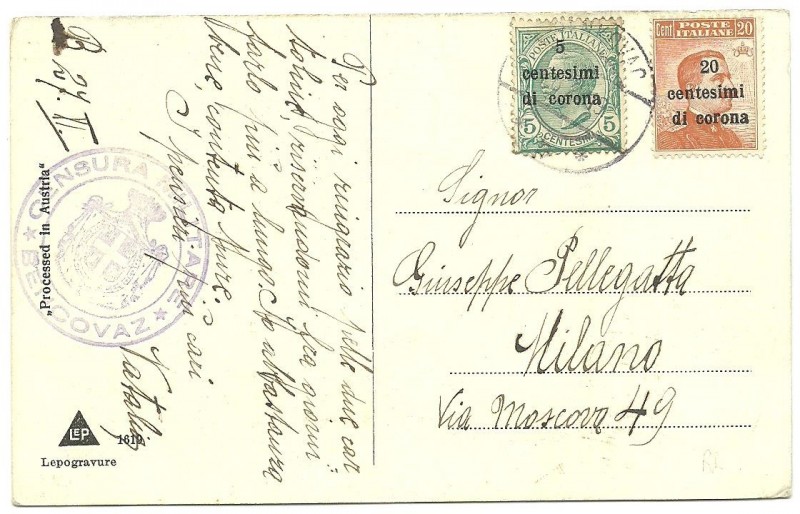 B 27. V.
Per oggi ringrazio nelle due car
toline, riservandomi fra giorni
farlo più a lungo. Sto abbastanza
bene, contenta pure.
I pensieri più cari
Natalia
CENSURA MILITARE
BERCOVAZ
„Processed in Austria"
LEP
1619
Lepogravure
POSTE ITALIANE
5
centesimi
di corona
5 CENTESIMI 5
Cent POSTE ITALIANE 20
20
centesimi
di corona
Signor
Giuseppe Pellegatta
Milano
Via Moscova 49